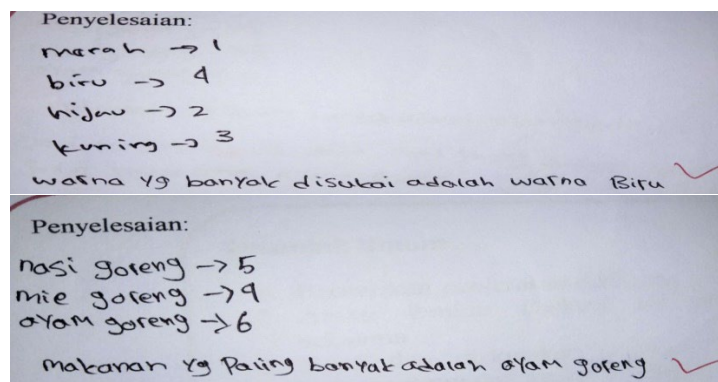 Penyelesaian:
marah -> 1
biru -> 4
hijau -> 2
kuning -> 3
warna yg banyak disukai adalah warna Biru
Penyelesaian:
nasi goreng -> 5
mie goreng -> 4
ayam goreng -> 6
makanan yg Paling banyak adalah ayam goreng